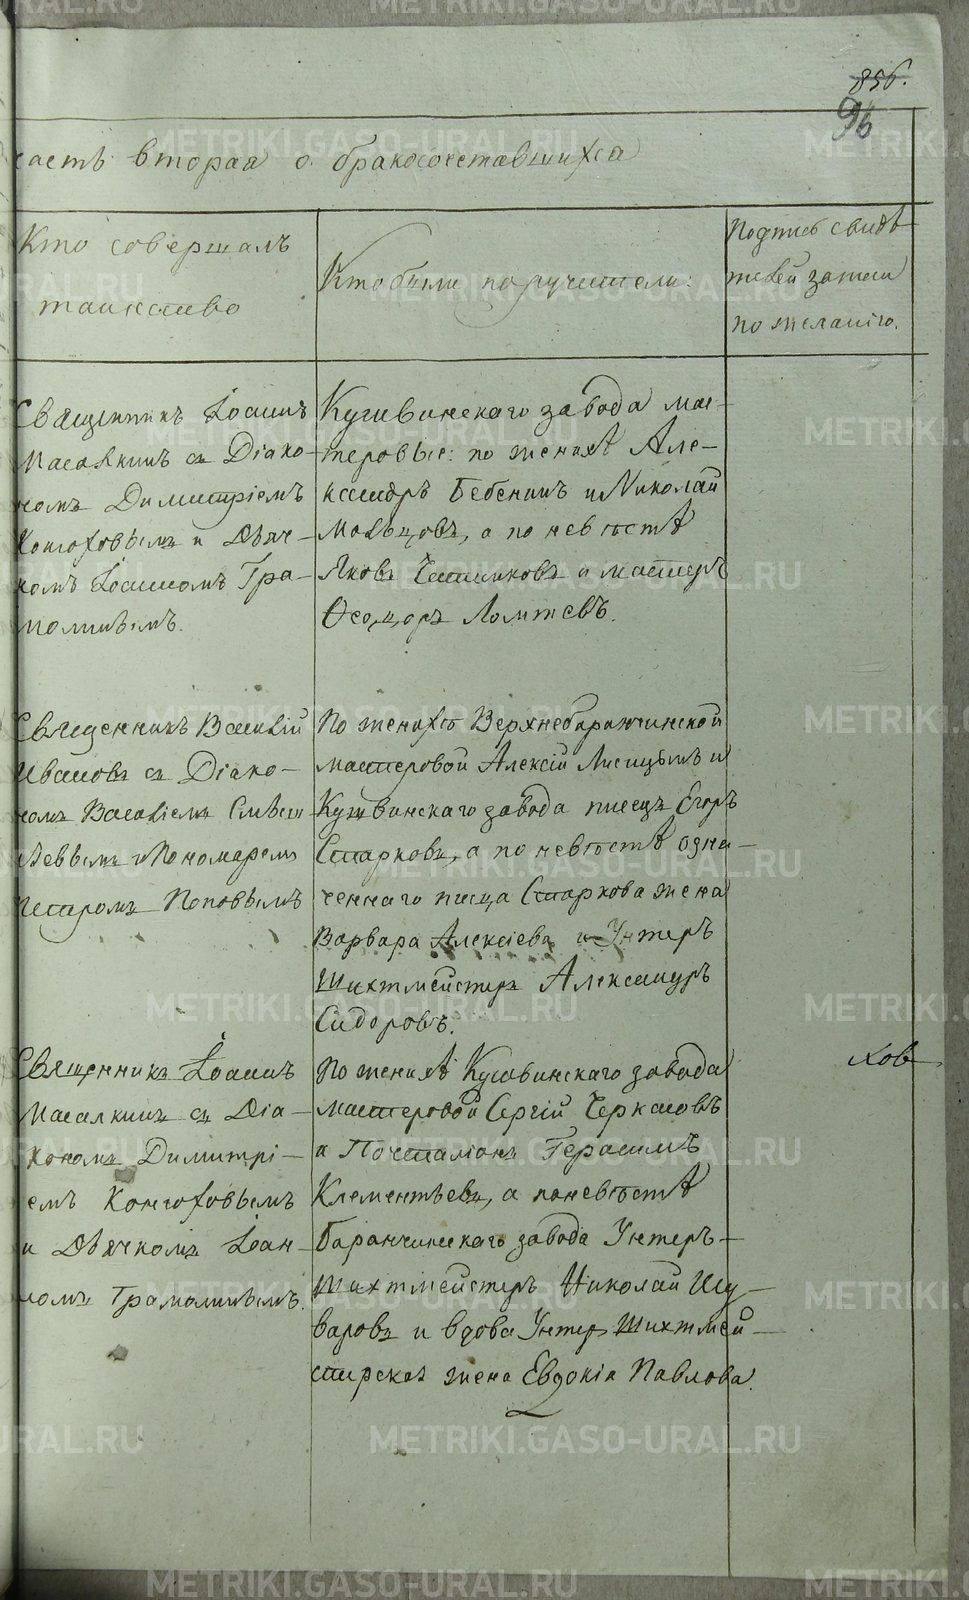 856.
96
часть вторая о бракосочетавшихся
Кто совершалъ
таинство
Кто были поручители:
Подпись свидѣ
телей записи
по желанію.
Священникъ Іоаннъ
Масалкинъ съ Діако-
номъ Димитріемъ
Конюховымъ и Дьяч-
комъ Іоанномъ Гра-
молинымъ.
Кушвинскаго завода мас-
теровые: по женихѣ Але-
ксандръ Бебенинъ и Николай
Мальцовъ, а по невѣстѣ
Яковъ и мастеръ
Ѳеодоръ Ломтевъ.
Священникъ Василій
Ивановъ съ Діако-
номъ Василіемъ
и Пономаремъ
Петромъ Поповымъ
По женихѣ Верхнебаранчинской
мастеровой Алексій Лисицынъ и
Кушвинскаго завода писецъ Егоръ
Старковъ, а по невѣстѣ одна-
ченнаго писца Старкова жена
Варвара Алексіева и Унтеръ
Шихтмейстеръ Александръ
Сидоровъ.
Священникъ Іоаннъ
Масалкинъ съ Діа-
кономъ Димитрі-
емъ Конюховымъ
и Дьячкомъ Іоан-
номъ Грамолинымъ.
По женихѣ Кушвинскаго завода
мастеровой Сергій Черкасовъ
и Почталіонъ Герасимъ
Клементьевъ, а по невѣстѣ
Баранчинскаго завода Унтеръ-
Шихтмейстеръ Николай Шу-
варовъ и вдова Унтеръ Шихтмей-
стерская жена Евдокія Павлова.
ховъ
METRIKI.GASO-URAL.RU